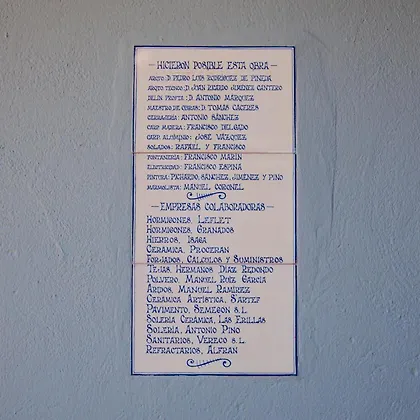 —HICIERON POSIBLE ESTA OBRA—
ARQTO: D. PEDRO LUIS RODRIGUEZ DE PINEDA
ARQTO TECNCO: D. JUAN RICARDO JIMENEZ CANTERO
DELIN PROYTA: D. ANTONIO MARQUEZ
MAESTRO DE OBRAS: D. TOMAS CACERES
CERRAJERIA: ANTONIO SÁNCHEZ
CARP. MADERA: FRANCISCO DELGADO
CARP. ALUMINIO: JOSÉ VAZQUEZ
SOLADOS: RAFAEL Y FRANCISCO
FONTANERIA: FRANCISCO MARIN
ELECTRICIDAD: FRANCISCO ESPINA
PINTURA: PICHARDO, SANCHEZ, JIMENEZ Y PINO
MARMOLISTA: MANUEL CORONEL
—EMPRESAS COLABORADORAS—
HORMIGONES, LEFLET
HORMIGONES, GRANADOS
HIERROS, ISAGA
CERAMICA, PROCERAN
FORJADOS, CALCULOS Y SUMINISTROS
TEJAS, HERMANOS DIAZ REDONDO
POLVERO, MANUEL RUIZ GARCIA
ARIDOS, MANUEL RAMIREZ
CERAMICA ARTÍSTICA, S'ARTEF
PAVIMENTO, SEMEGON S.L.
SOLERIA CERAMICA, LAS ERILLAS
SOLERÍA, ANTONIO PINO
SANITARIOS, VERECO S.L.
REFRACTARIOS, ALFRAN